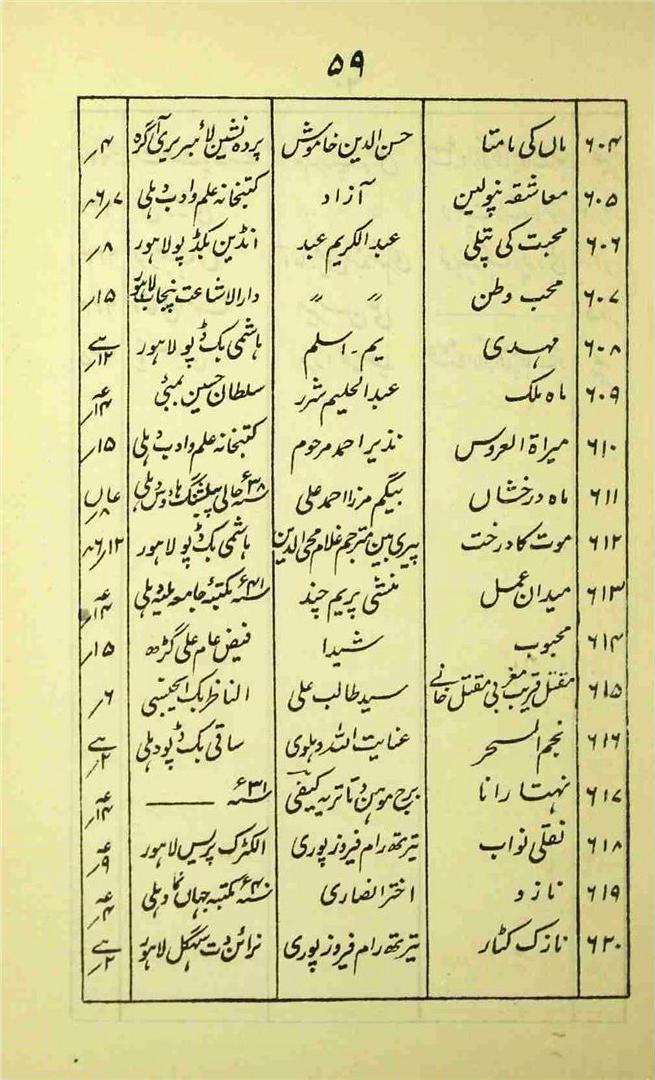 ۵۹
۶۰۴ ماں کی مامتا حسن الدین خاموش پردہ نشین لائبریری آگرہ ۴؍
۶۰۵ معاشقہ نپولین آزاد کتبخانہ علم و ادب دہلی ۷؍۶؍
۶۰۶ محبت کی پتلی عبدالکریم عبد انڈین بکڈپو لاہور ۸؍
۶۰۷ محب وطن ” ” دارالاشاعت پنجاب لاہور ۱۵؍
۶۰۸ مہدی یم۔اسلم ہاشمی بک ڈپو لاہور ۱۲؍
۶۰۹ ماہ ملک عبدالحلیم شرر سلطان حسین بمبئی ۱۴؍
۶۱۰ میراۃ العروس نذیر احمد مرحوم کتبخانہ علم و ادب دہلی ۱۵؍
۶۱۱ ماہ درخشاں بیگم مرزا احمد علی ۳۸ء حالی پبلشنگ ہاؤس دہلی ۸؍
۶۱۲ موت کا درخت پیری بین مترجم غلام محی الدین ہاشمی بک ڈپو لاہور ۱۲؍۶؍
۶۱۳ میدان عمل منشی پریم چند ۴۱ء مکتبۂ جامعہ ملیہ دہلی ۱۴؍
۶۱۴ محبوب شیدا فیض عام علی گڑھ ۱۵؍
۶۱۵ مقتل قریب مغربی مقتل خانے سید طالب علی الناظر بک ایجنسی ۶؍
۶۱۶ نجم السحر عنایت اللہ دہلوی ساقی بک ڈپو دہلی ۲؍
۶۱۷ نہتا رانا برج موہن دتاتریہ کیفی ۳۱ء ــــــ ۱۴؍
۶۱۸ نقلی نواب تیرتھ رام فیروز پوری الکٹرک پریس لاہور ۹؍
۶۱۹ نازو اختر انصاری ۴۰ء مکتبہ جہاں نما دہلی ۴؍
۶۲۰ نازک کٹار تیرتھ رام فیروز پوری نرائن دت سہگل لاہور ۲؍